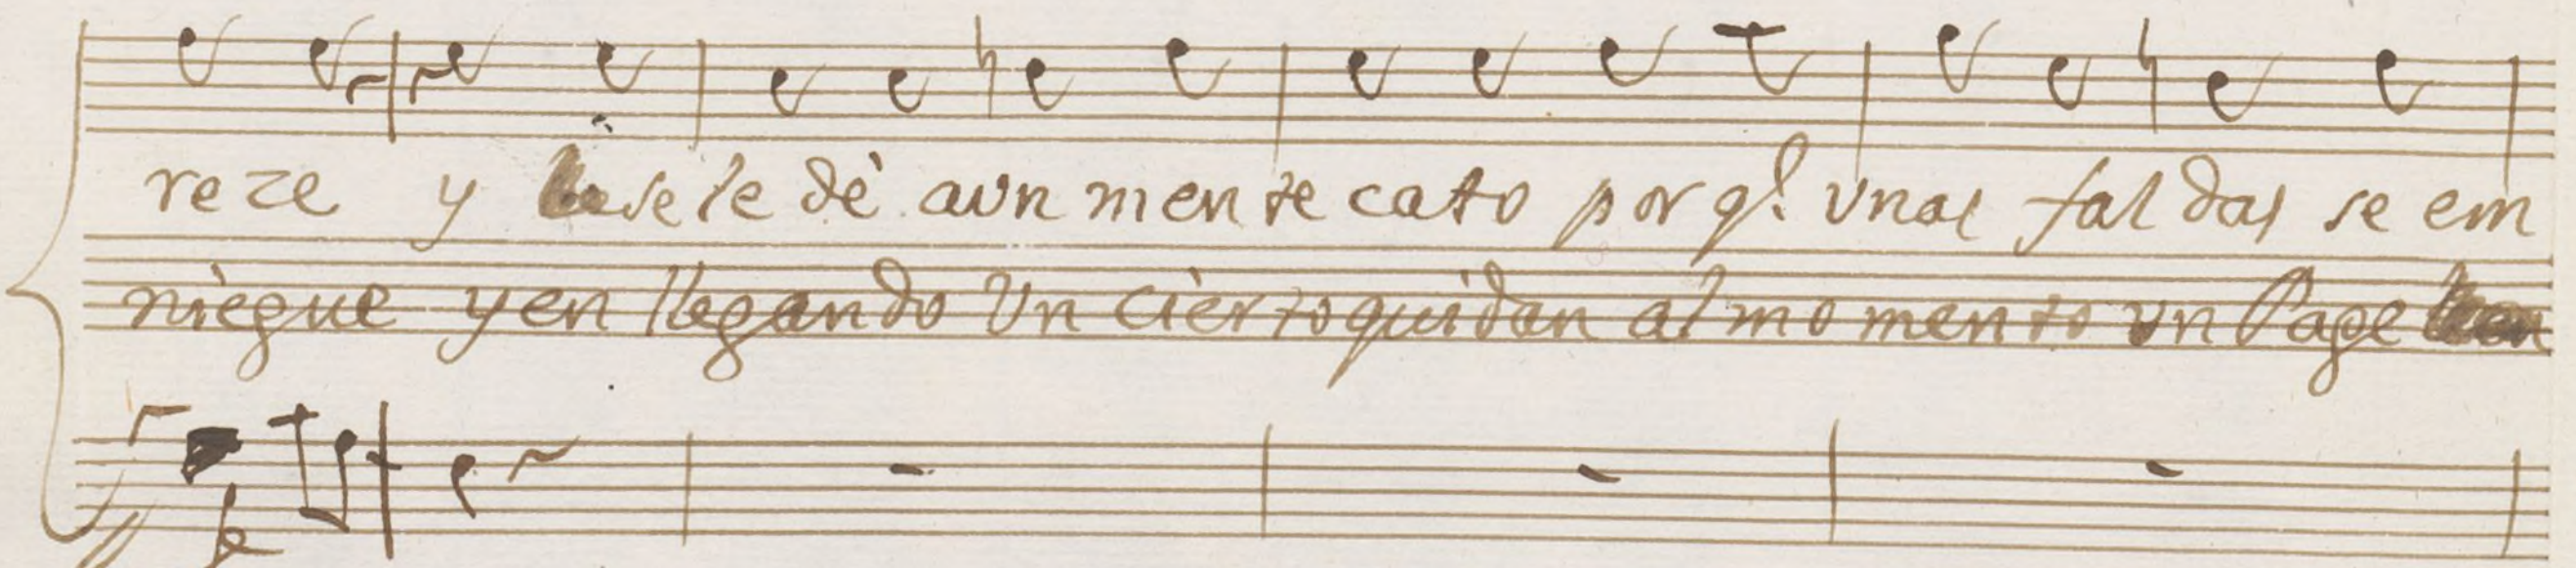 re ze y se le dè aun men te cato por q.e unas fal das se em
niegue y en llegando Un cièr to quidan al mo men to un Page